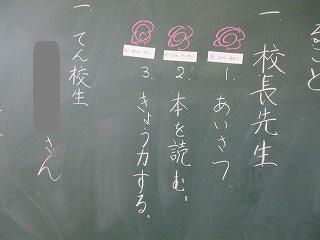 ること
一 校長先生
1. あいさつ
2. 本を読む。
3. きょう力する。
一. てん校生
さん